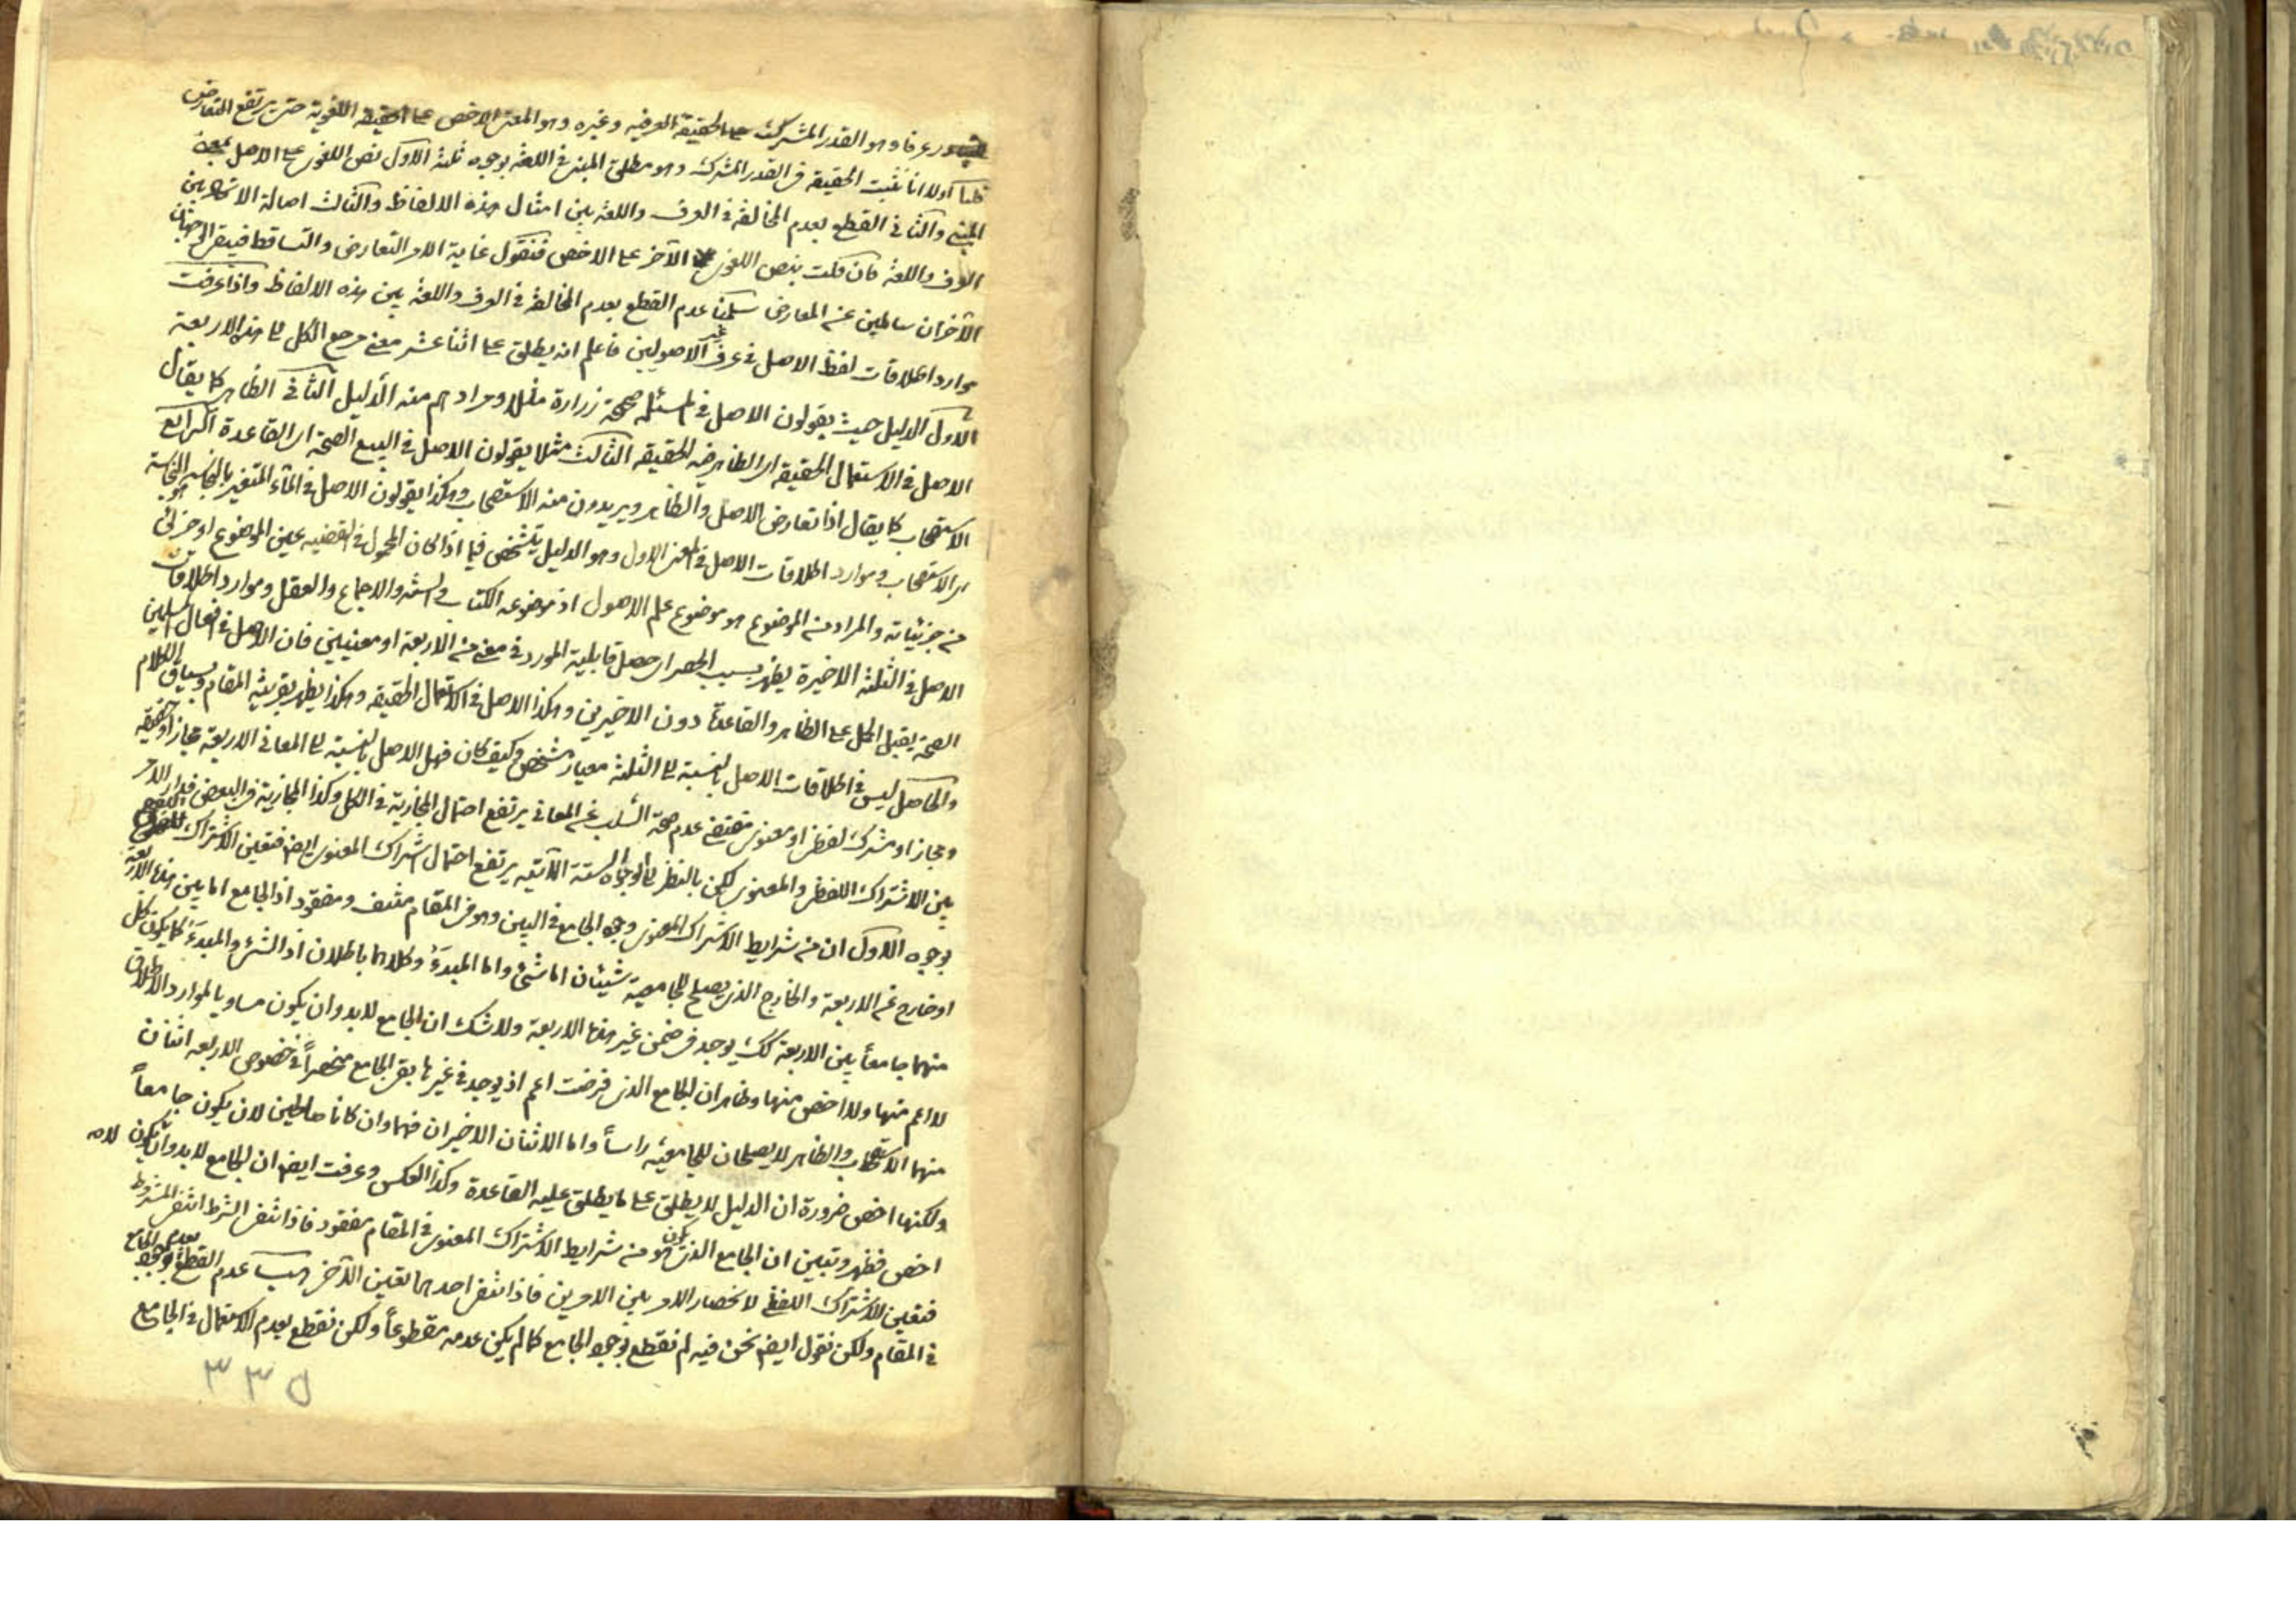 عرفا وهو القدر المشترك بين الحقيقة العرفيه وغيره وهو المعنى الاخص على الحقيقة اللغوية حتى يرتفع التعارض
قلنا اولا انا نثبت الحقيقة في القدر المشترك وهو مطلق المبنى في اللغة بوجوه ثلثة الاول نص اللغوى على الاصل بمعنى
المبنى والثانى القطع بعدم المخالفة فى العرف واللغة بين امثال هذه الالفاظ والثالث اصالة الاتحاد بين
العرف واللغة فان قلت بنص اللغوى الآخر على الاخص فنقول غاية الامر التعارض والتساقط فيبقى الوجهان
الآخران سالمين عن المعارض سلمنا عدم القطع بعدم المخالفة فى العرف واللغة بين هذه الالفاظ واذا عرفت
موارد اطلاقات لفظ الاصل فى عرف غير الاصوليين فاعلم انه يطلق على اثنا عشر معنى مرجع الكل الى هذه الاربعة
الاول الدليل حيث يقولون الاصل فى المسئلة صحيحة زرارة مثلا ومرادهم منه الدليل الثانى الظاهر كما يقال
الاصل فى الاستعمال الحقيقة اى الظاهر فيه الحقيقة الثالث مثلا يقولون الاصل فى البيع الصحة اى القاعدة الرابع
الاستصحاب كما يقال اذا تعارض الاصل والظاهر ويريدون منه الاستصحاب وهكذا يقولون الاصل فى الماء المتغير بالنجاسة النجاسة
اى الاستصحاب وموارد اطلاقات الاصل فى المعنى الاول وهو الدليل يتشخص فيما اذا كان المحمول فى القضيه عين الموضوع او جزئى
من جزئياته والمراد من الموضوع هو موضوع علم الاصول اذ موضوعه الكتاب والسنة والاجماع والعقل وموارد اطلاقات
الاصل فى الثلثة الاخيرة يظهر بسبب الحصر اى حصل قابلية المورد فى معنى من الاربعة او معنيين فان الاصل فى افعال المسلمين
الصحة يقبل الحمل على الظاهر والقاعدة دون الاخيرين وهكذا الاصل فى الاستعمال الحقيقة وهكذا يظهر بقرينة المقام وسياق الكلام
والحاصل ليس فى اطلاقات الاصل بالنسبة الى الثلثة معيار مشخص وكيف كان فهل الاصل بالنسبة الى المعانى الاربعة مجاز او حقيقة
ومجاز او مشترك لفظى او معنوى مقتضى عدم صحة السلب عن المعانى يرتفع احتمال المجازية فى الكل وكذا المجازية فى البعض فدار الامر
بين الاشتراك اللفظى والمعنوى لكن بالنظر الى الوجوه الستة الآتيه يرتفع احتمال اشتراك المعنوى ايضا فتعين الاشتراك اللفظى
بوجوه الاول ان من شرايط الاشتراك المعنوى وجود الجامع فى البين وهو فى المقام منتف ومفقود اذ الجامع اما بين هذه الاربعة
او خارج عن الاربعة والخارج الذى يصلح للجامعية شيئان اما الشئ واما المبدء وكلاهما باطلان اذ الشئ والمبدء كما يكون كل
منهما جامعا بين الاربعة كك يوجد فى ضمن غير هذه الاربعة ولا شك ان الجامع لابد وان يكون مساويا لموارد الاطلاق
لا اعم منها ولا اخص منها وظاهر ان الجامع الذى فرضت اعم اذ يوجد فى غيرها بقى الجامع منحصرا فى خصوص الاربعة اثنان
منهما الاستصحاب والظاهر لا يصلحان للجامعية راسا واما الاثنان الاخيران فهما وان كانا صالحين لان يكون جامعا
ولكنها اخص ضرورة ان الدليل لا يطلق على ما يطلق عليه القاعدة وكذا العكس وعرفت ايضا ان الجامع لابد وان يكون لا
اخص فظهر وتبين ان الجامع الذى يكون هو من شرايط الاشتراك المعنوى فى المقام مفقود فاذا انتفى الشرط انتفى المشروط
فتعين الاشتراك اللفظى لانحصار الامر بين الامرين فاذا انتفى احدهما تعين الآخر هب عدم القطع بعدم الجامع
فى المقام ولكن نقول ايضا نحن فيه لم نقطع بوجود الجامع كما لم يكن عدمه مقطوعا ولكن نقطع بعدم الاستعمال فى الجامع